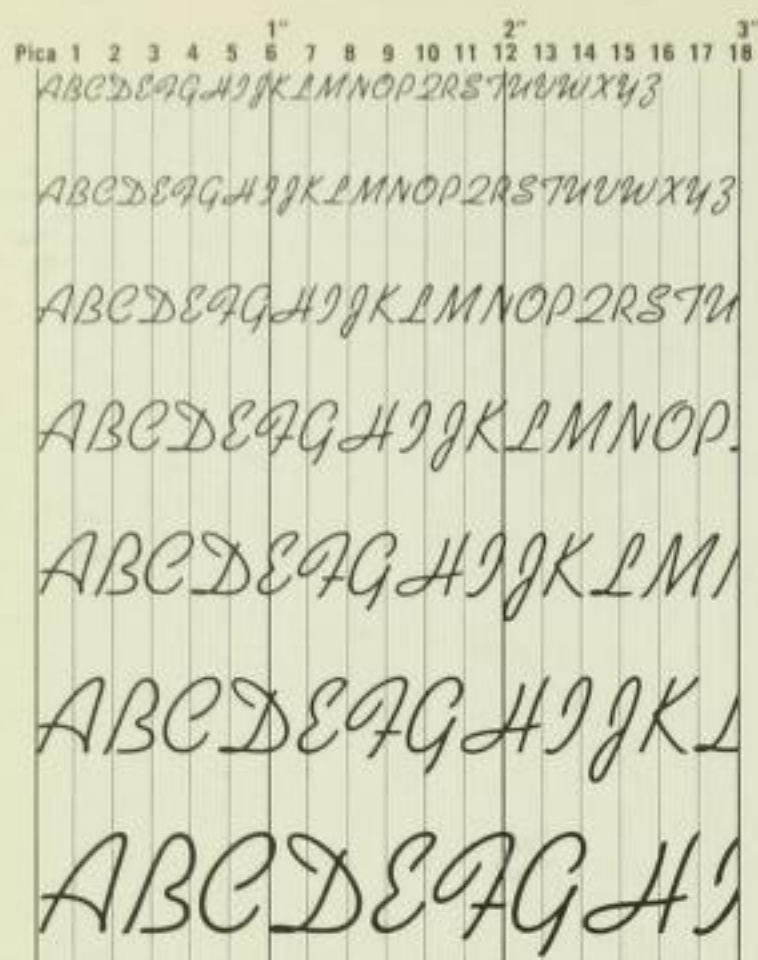 1" 2" 3"
Pica 1 2 3 4 5 6 7 8 9 10 11 12 13 14 15 16 17 18
ABCDEFGHIJKLMNOPQRSTUVWXYZ
ABCDEFGHIJKLMNOPQRSTUVWXYZ
ABCDEFGHIJKLMNOPQRSTU
ABCDEFGHIJKLMNOP
ABCDEFGHIJKLM
ABCDEFGHIJKL
ABCDEFGHI